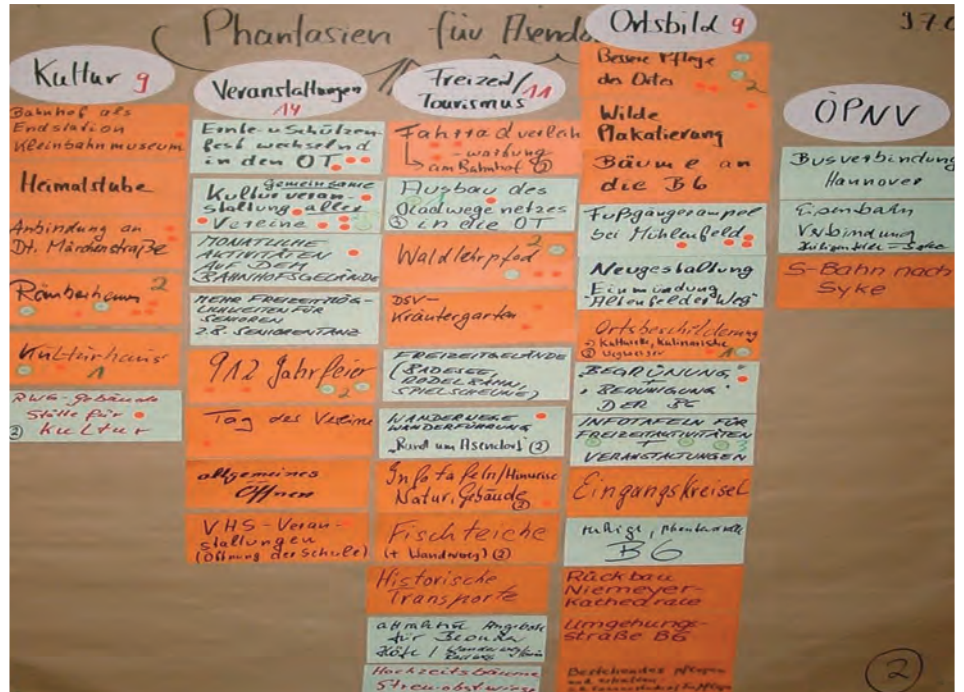 Phantasien für Asendo
Kultur 9
Bahnhof als
Endstation
Kleinbahnmuseum
Heimatstube
Anbindung an
Dt. Märchenstraße
Räuberhaus 2
Kulturhaus
1
RWG-Gebäude
Stätte für
② Kultur
Veranstaltungen
14
Ernte- u Schützen
fest wechselnd
in den OT
gemeinsame
Kulturveran-
staltung aller
Vereine 3
MONATLICHE
AKTIVITÄTEN
AUF DEM
BAHNHOFSGELÄNDE
MEHR FREIZEITMÖG-
LICHKEITEN FÜR
SENIOREN
z.B. SENIORENTANZ
912 Jahrfeier
2
Tag der Vereine
allgemeines
Öffnen
VHS-Veran-
staltungen
(Öffnung der Schule)
Freizeit/ 11
Tourismus
Fahrradverleih
-wartung
am Bahnhof ②
Ausbau des
Radwegenetzes
③ in die OT
Waldlehrpfad 2
DSV-
Kräutergarten
FREIZEITGELÄNDE
(BADESEE,
RODELBAHN,
SPIELSCHEUNE)
WANDERWEGE
WANDERFÜHRUNG
„Rund um Asendorf" ②
Infotafeln/Hinweise
Natur, Gebäude
②
Fischteiche
(+ Wanderweg) ②
Historische
Transporte
attraktive Angebote
für
Höfe /
Hochzeitsbäume
Streuobstwiese
Ortsbild 9
Bessere Pflege
des Ortes 2
Wilde
Plakatierung
Bäume an
die B6
Fußgängerampel
bei Mühlenfeld
Neugestaltung
Einmündung
"Altenfelder Weg"
Ortsbeschilderung
Kulturelle, Kulinarische
② Wegweiser 1
BEGRÜNUNG
+
BERUHIGUNG
DER B6
INFOTAFELN FÜR
FREIZEITAKTIVITÄTEN
+ 3
VERANSTALTUNGEN
Eingangskreisel
ruhige, phantasievolle
B6
Rückbau
Niemeyer-
Kathedrale
Umgehungs-
straße B6
Bestehendes pflegen
und erhalten
ÖPNV
Busverbindung
Hannover
Eisenbahn
Verbindung
Syke
S-Bahn nach
Syke
2